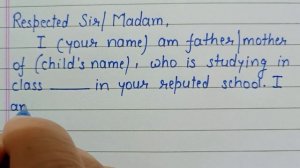 Respected Sir/ Madam,
I (your name) am father/mother
of (child's name), who is studying in
class _____ in your reputed school. I
am